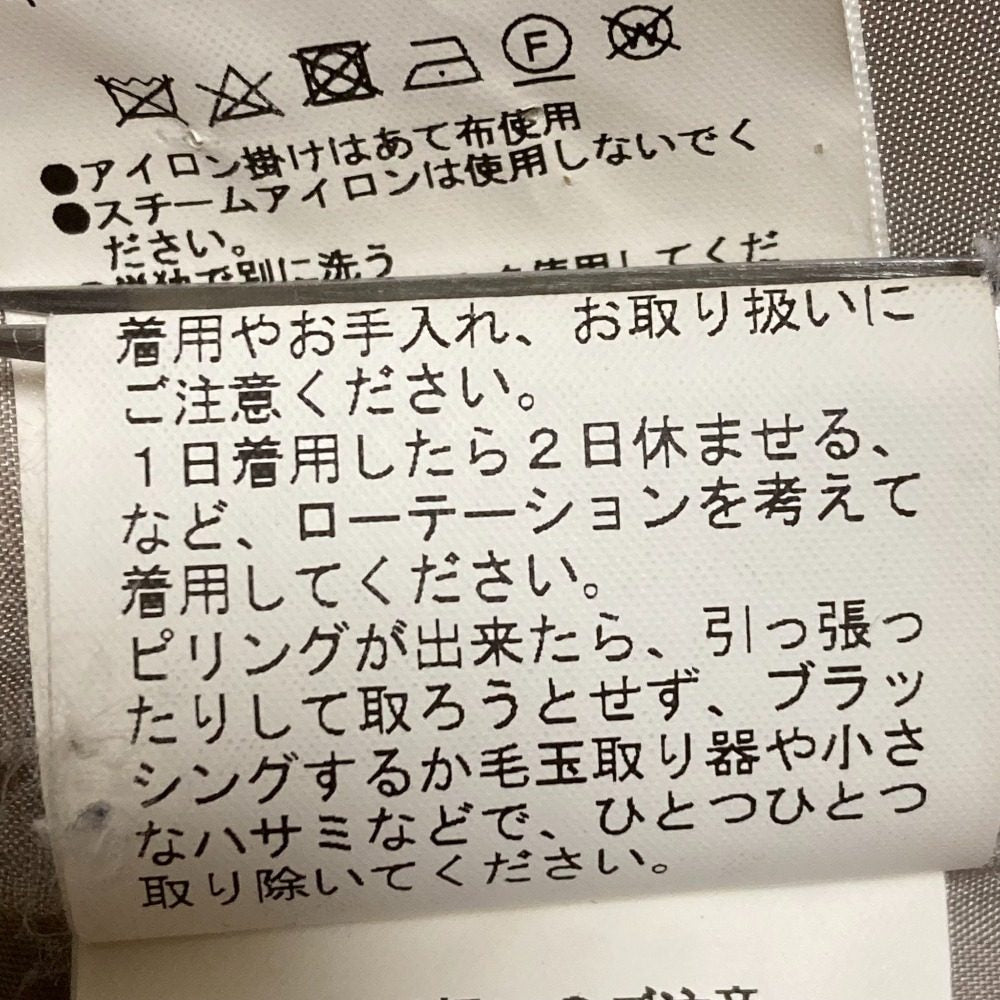 F
W
●アイロン掛けはあて布使用
●スチームアイロンは使用しないでく
ださい。
●単独で別に洗う
使用してくだ
着用やお手入れ、お取り扱いに
ご注意ください。
1日着用したら2日休ませる、
など、ローテーションを考えて
着用してください。
ピリングが出来たら、引っ張っ
たりして取ろうとせず、ブラッ
シングするか毛玉取り器や小さ
なハサミなどで、ひとつひとつ
取り除いてください。
ご注意